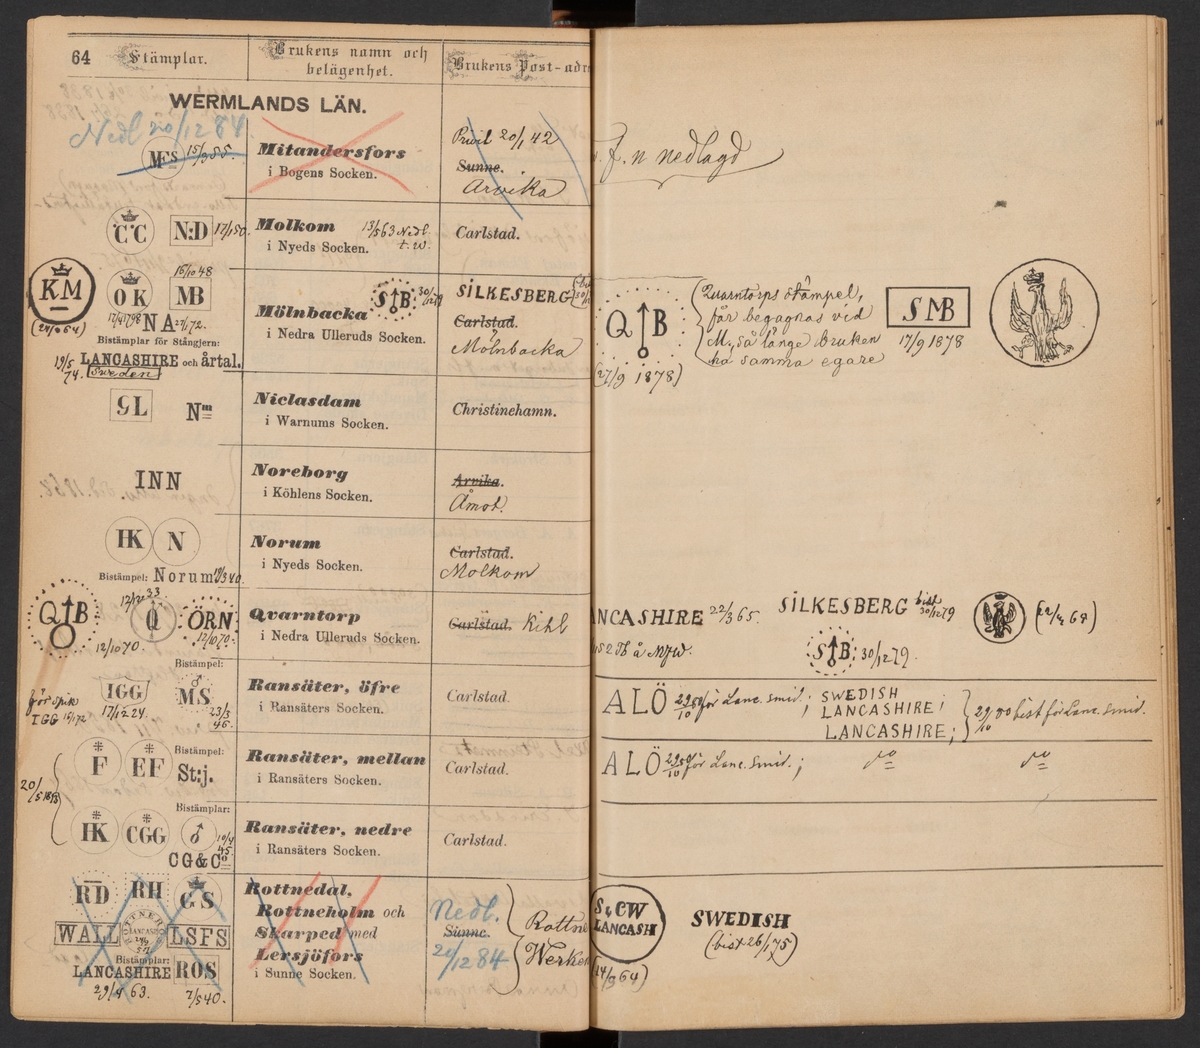 64 Stämplar. Brukens namn och belägenhet. Brukens Post-adre
WERMLANDS LÄN.
Nedl 20/12 84.
M:F:S 15/9 55.
Mitandersfors
i Bogens Socken.
Privil 20/1 42
Sunne.
Arvika
f.n nedlagd
CC N:D 17/1 50.
Molkom 13/5 63 Nedl.
i Nyeds Socken.
Carlstad.
KM
(24/9 64)
OK
16/10 48
MB
NA 27/1 72.
Bistämplar för Stångjern:
19/5 74. LANCASHIRE och årtal.
Sweden
Mölnbacka S B 30/12 79
i Nedra Ulleruds Socken.
SILKESBERG
Carlstad.
Mölnbacka
Q B
(27/9 1878)
Quarntorps stämpel,
får begagnas vid
M, så länge bruken
ha samma egare
S MB
17/9 1878
9L Nm
Niclasdam
i Warnums Socken.
Christinehamn.
INN
Noreborg
i Köhlens Socken.
Arvika.
Åmot.
HK N
Bistämpel: Norum
Norum
i Nyeds Socken.
Carlstad.
Molkom
Q B
12/10 70.
Q
ÖRN
12/10 70.
Qvarntorp
i Nedra Ulleruds Socken.
Carlstad. Kihl
ANCASHIRE 22/3 65.
SILKESBERG bist 30/12 79
S B 30/12 79.
Bistämpel:
för spik
IGG 15/1 72
IGG
17/12 24.
MS
23/3 46.
Ransäter, öfre
i Ransäters Socken.
Carlstad.
ALÖ 29/10 50 för Lanc. smid.; SWEDISH
LANCASHIRE;
LANCASHIRE;
29/10 50 bist för Lanc. smid.
F EF
Bistämpel:
St:j.
Ransäter, mellan
i Ransäters Socken.
Carlstad.
ALÖ 29/10 50 för Lanc. smid.; do do
HK CGG
Bistämplar:
10/4 45.
CG&Co
Ransäter, nedre
i Ransäters Socken.
Carlstad.
RD RH GS
WALL ROTTNEROS LANCASHIRE LSFS
Bistämplar:
LANCASHIRE ROS
29/4 63. 7/5 40.
Rottnedal.
Rottneholm och
Skarped med
Lersjöfors
i Sunne Socken.
Nedl.
Sunne.
20/12 84
Rottne
Werken
S&CW
LANCASH
(14/3 64)
SWEDISH
(bist 26/1 75)